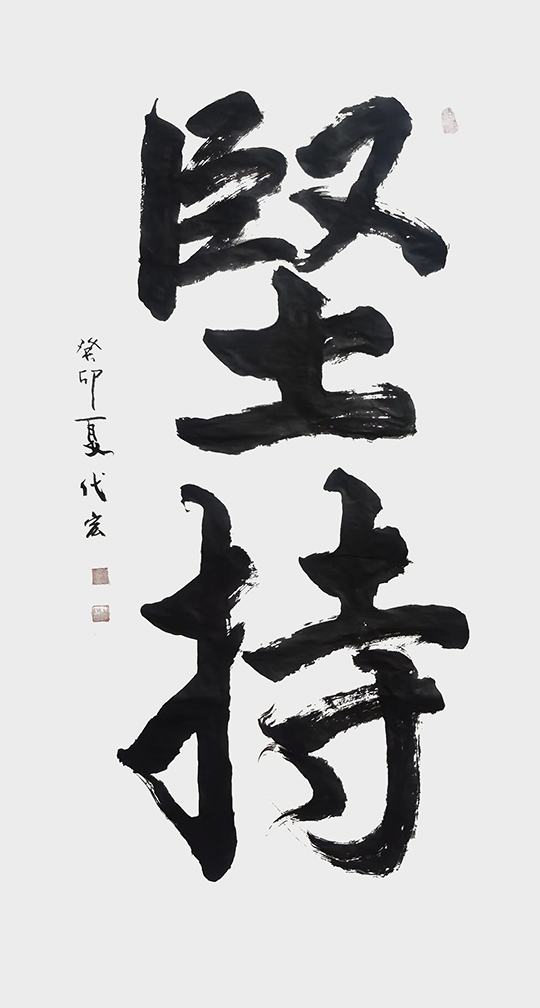 堅持
癸卯夏代宏